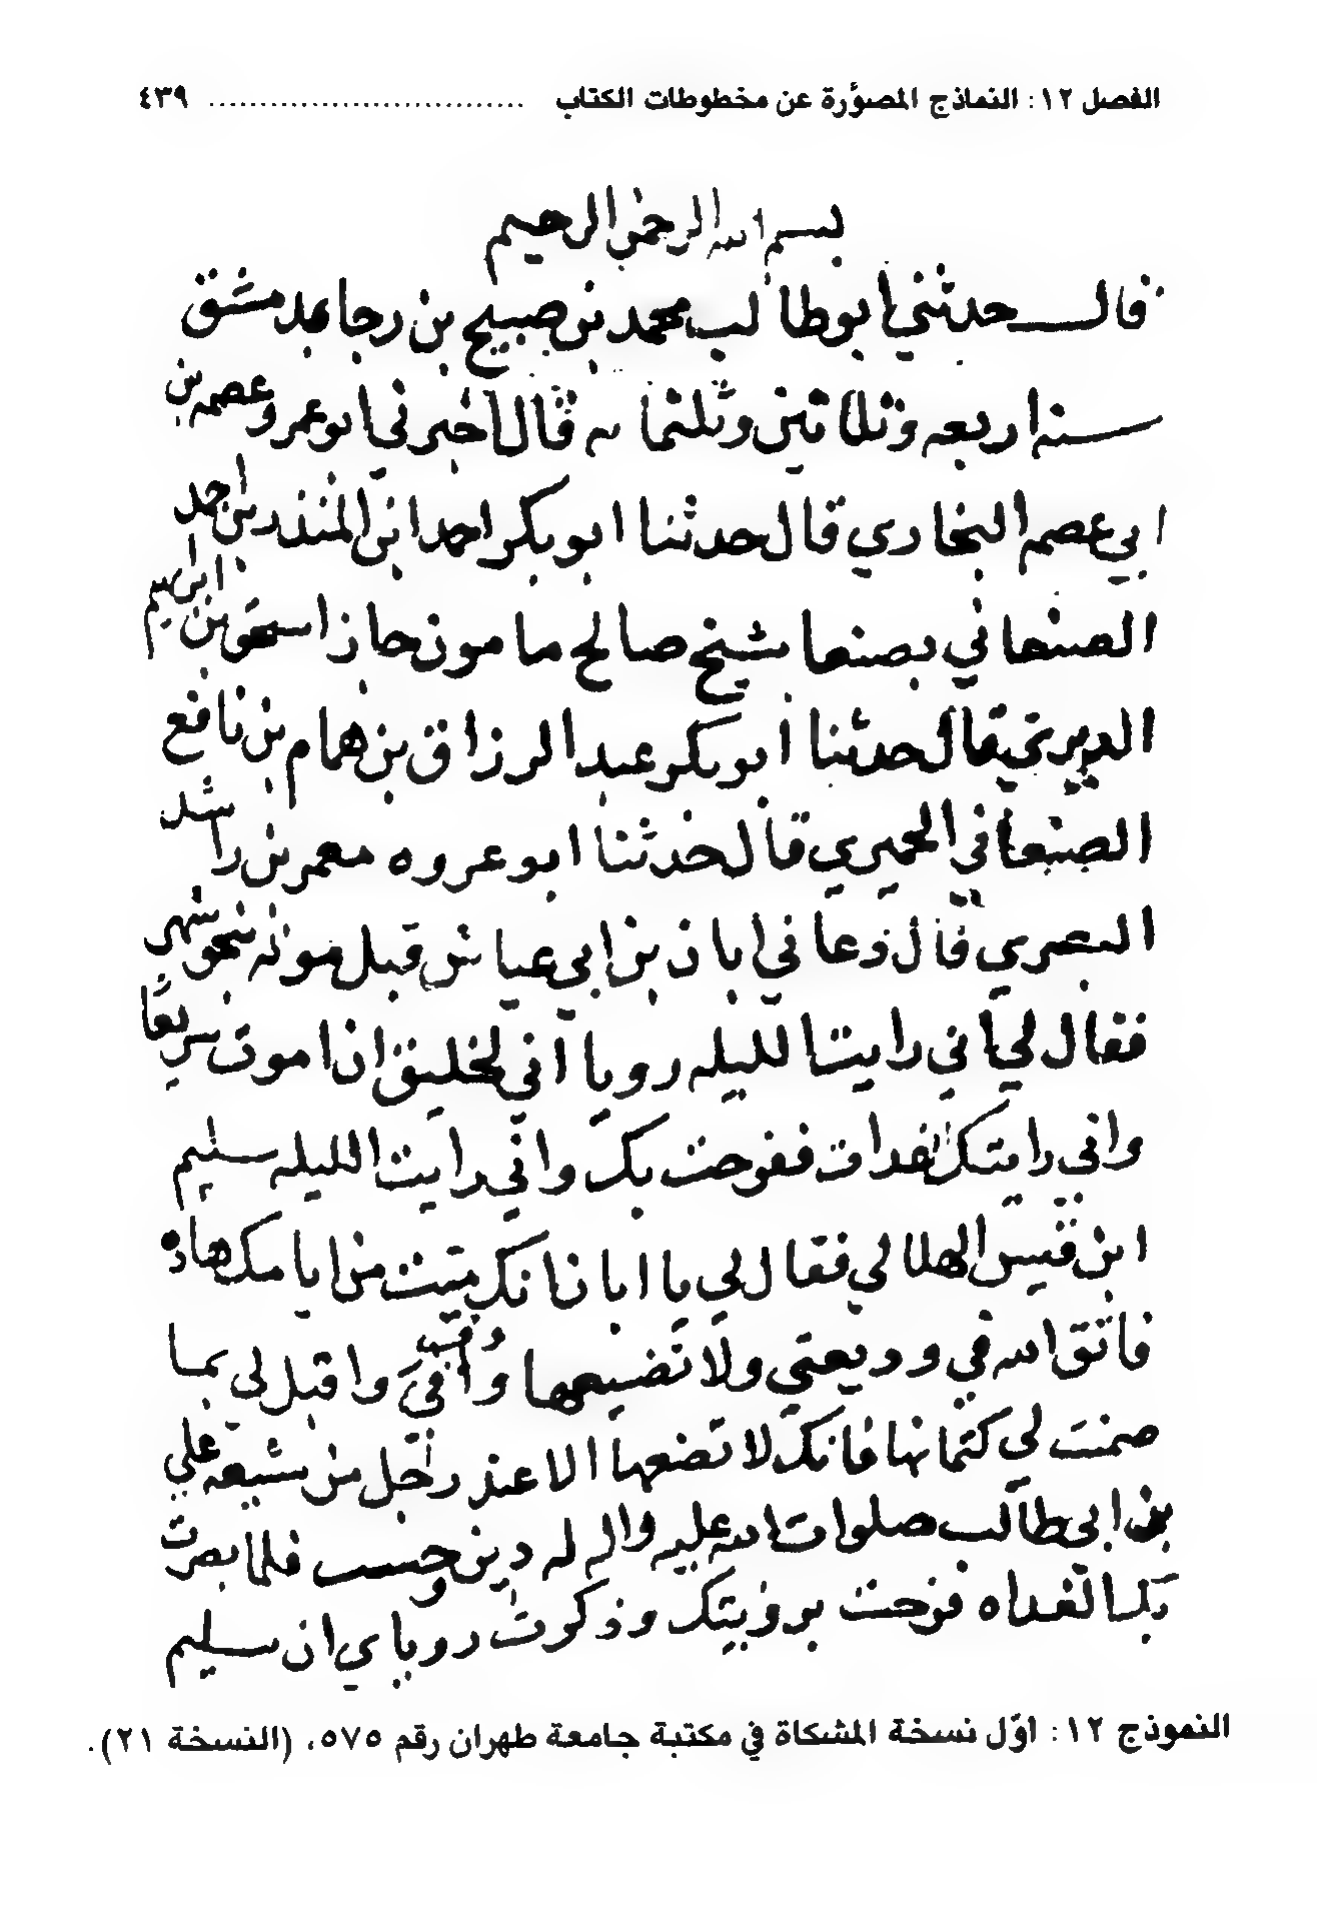 الفصل ١٢: النماذج المصوَّرة عن مخطوطات الكتاب .............................. ٤٣٩
بسم الله الرحمن الرحيم
قال حدثني ابو طالب محمد بن صبيح بن رجا بدمشق
سنه اربعه وثلاثين وثلثمايه قال اخبرني ابو عمرو عصمه بن
ابي عصمه البخاري قال حدثنا ابو بكر احمد ابن المنذر بن احمد
الصنعاني بصنعا شيخ صالح مامون جار اسحق بن ابراهيم
الديري قال حدثنا ابو بكر عبد الرزاق بن همام بن نافع
الصنعاني الحميري قال حدثنا ابو عروه معمر بن راشد
البصري قال دعاني ابان بن ابي عياش قبل موته بنحو شهر
فقال لي اني رايت الليله رويا اني لخليق ان اموت سريعا
واني رايتك الغداه ففرحت بك واني رايت الليله سليم
ابن قيس الهلالي فقال لي يا ابان انك ميت من ايامك هاذه
فاتق الله في وديعتي ولا تضيعها وفي لي واقبل لي بما
ضمنت لي كتمانها فانك لا تضعها الا عند رجل من شيعه علي
بن ابي طالب صلوات الله عليه واله له دين وحسب فلما بصرت
بك الغداه فرحت برؤيتك وذكرت روياي ان سليم
النموذج ١٢: أوّل نسخة المشكاة في مكتبة جامعة طهران رقم ٥٧٥، (النسخة ٢١).